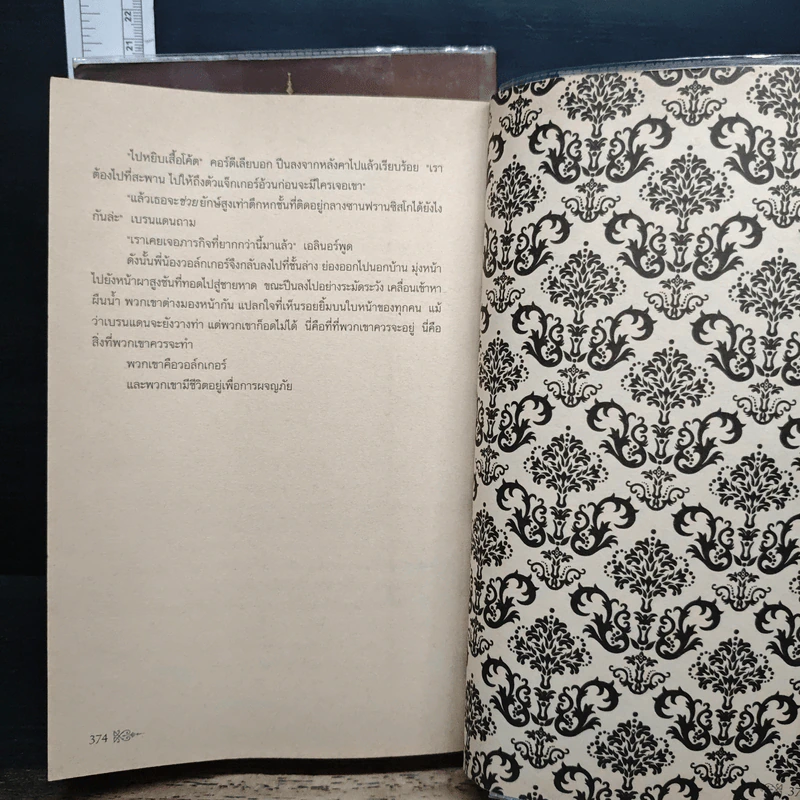 "ไปหยิบเสื้อโค้ต" คอร์ดีเลียบอก ปีนลงจากหลังคาไปแล้วเรียบร้อย "เรา
ต้องไปที่สะพาน ไปให้ถึงตัวแจ็กเกอร์อ้วนก่อนจะมีใครเจอเขา"
"แล้วเธอจะช่วยยักษ์สูงเท่าตึกหกชั้นที่ติดอยู่กลางซานฟรานซิสโกได้ยังไง
กันล่ะ" เบรนแดนถาม
"เราเคยเจอภารกิจที่ยากกว่านี้มาแล้ว" เอลินอร์พูด
ดังนั้นพี่น้องวอล์กเกอร์จึงกลับลงไปที่ชั้นล่าง ย่องออกไปนอกบ้าน มุ่งหน้า
ไปยังหน้าผาสูงชันที่ทอดไปสู่ชายหาด ขณะปีนลงไปอย่างระมัดระวัง เคลื่อนเข้าหา
ผืนน้ำ พวกเขาต่างมองหน้ากัน แปลกใจที่เห็นรอยยิ้มบนใบหน้าของทุกคน แม้
ว่าเบรนแดนจะยังวางท่า แต่พวกเขาก็อดไม่ได้ นี่คือที่ที่พวกเขาควรจะอยู่ นี่คือ
สิ่งที่พวกเขาควรจะทำ
พวกเขาคือวอล์กเกอร์
และพวกเขามีชีวิตอยู่เพื่อการผจญภัย
374
21 22